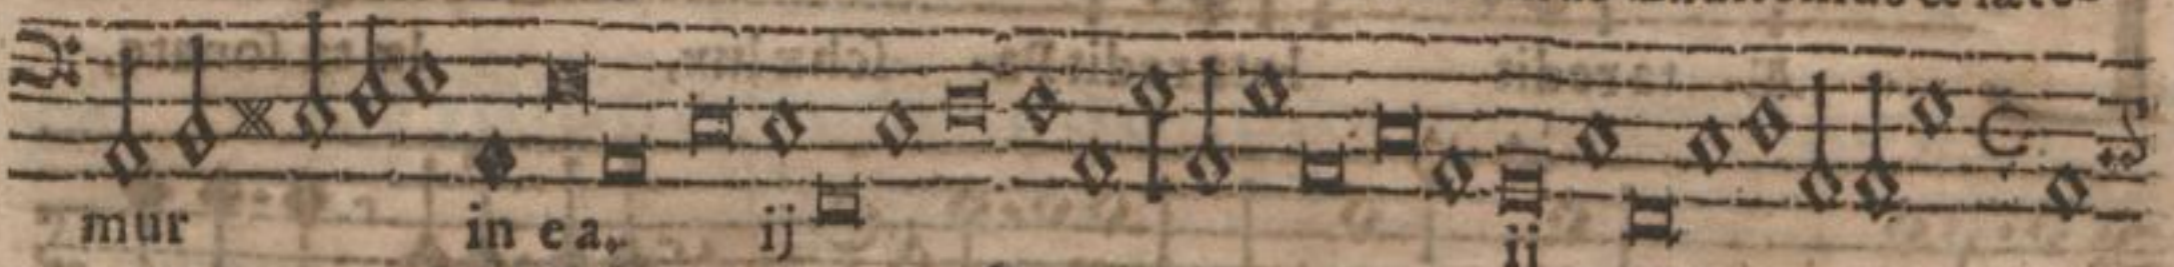 mur in ea. ij ij